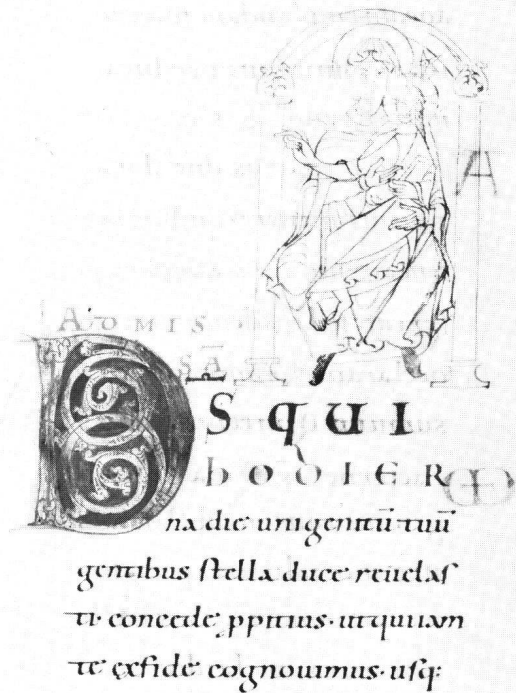 AD MIS
SĀ
D̄S QUI
HODIER
na die unigenitū tuū
gentibus stella duce reuelas
ti. concede ꝓpitius. ut qui iam
te ex fide cognouimus. usq: